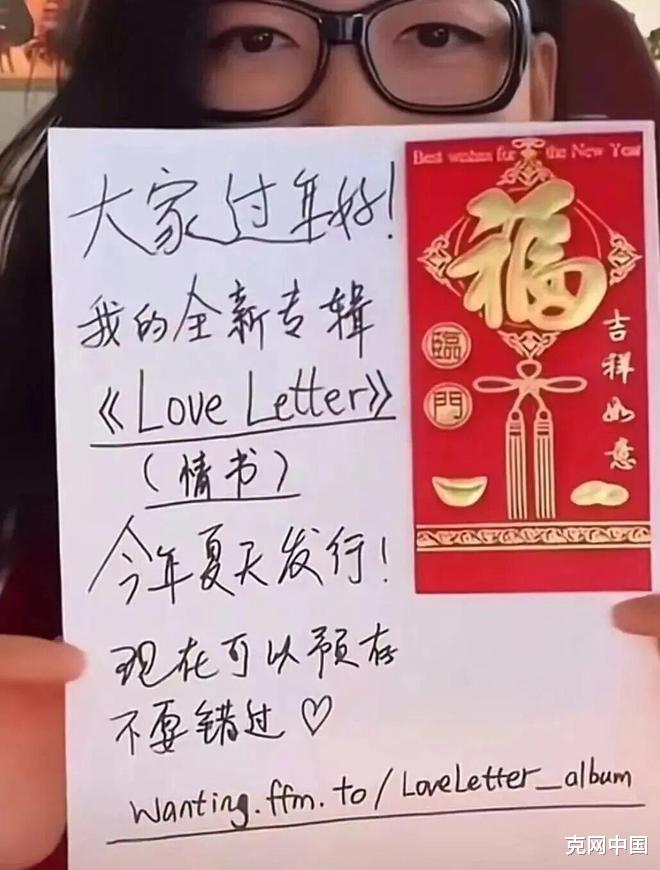 大家过年好！
我的全新专辑
《Love Letter》
（情书）
今年夏天发行！
现在可以预存
不要错过♡
wanting.ffm.to/LoveLetter_album
Best wishes for the New Year
福
臨
門
吉祥如意
克网中国